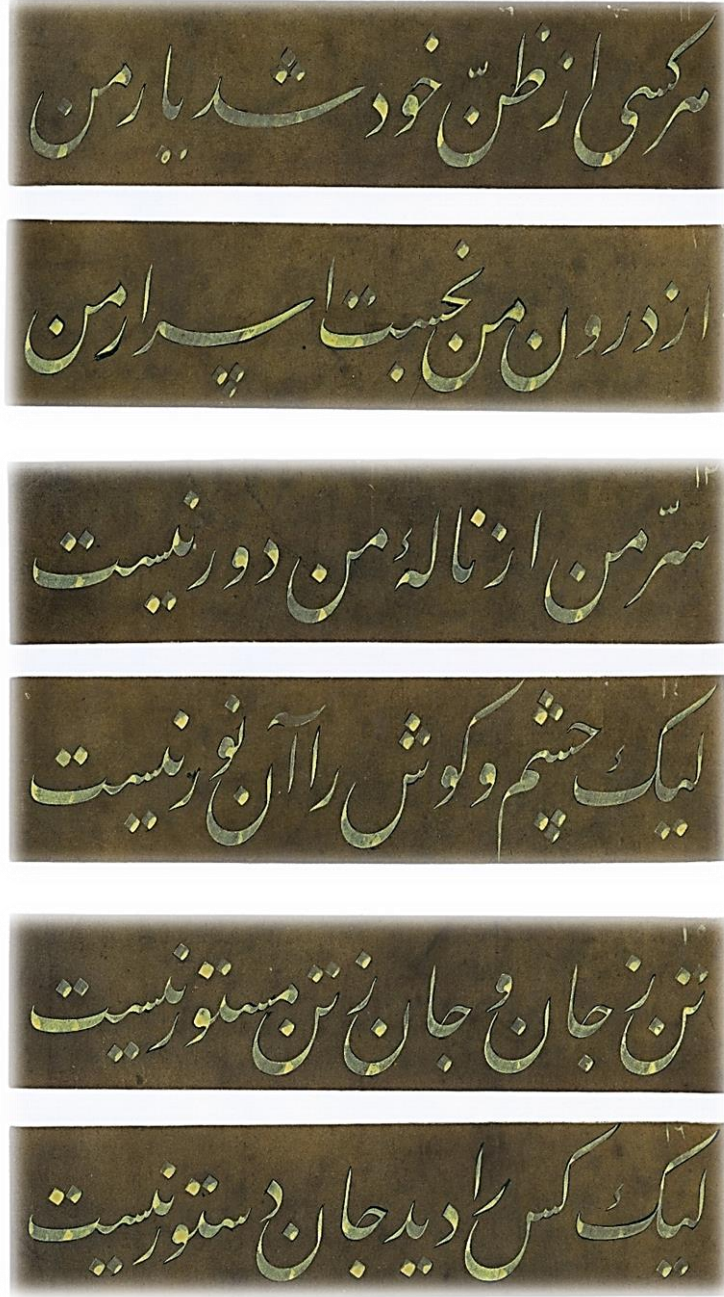 هر کسی از ظنّ خود شد یار من
از درون من نجست اسرار من
سرّ من از نالهٔ من دور نیست
لیک چشم و کوش را آن نور نیست
تن ز جان و جان ز تن مستور نیست
لیک کس را دید جان دستور نیست